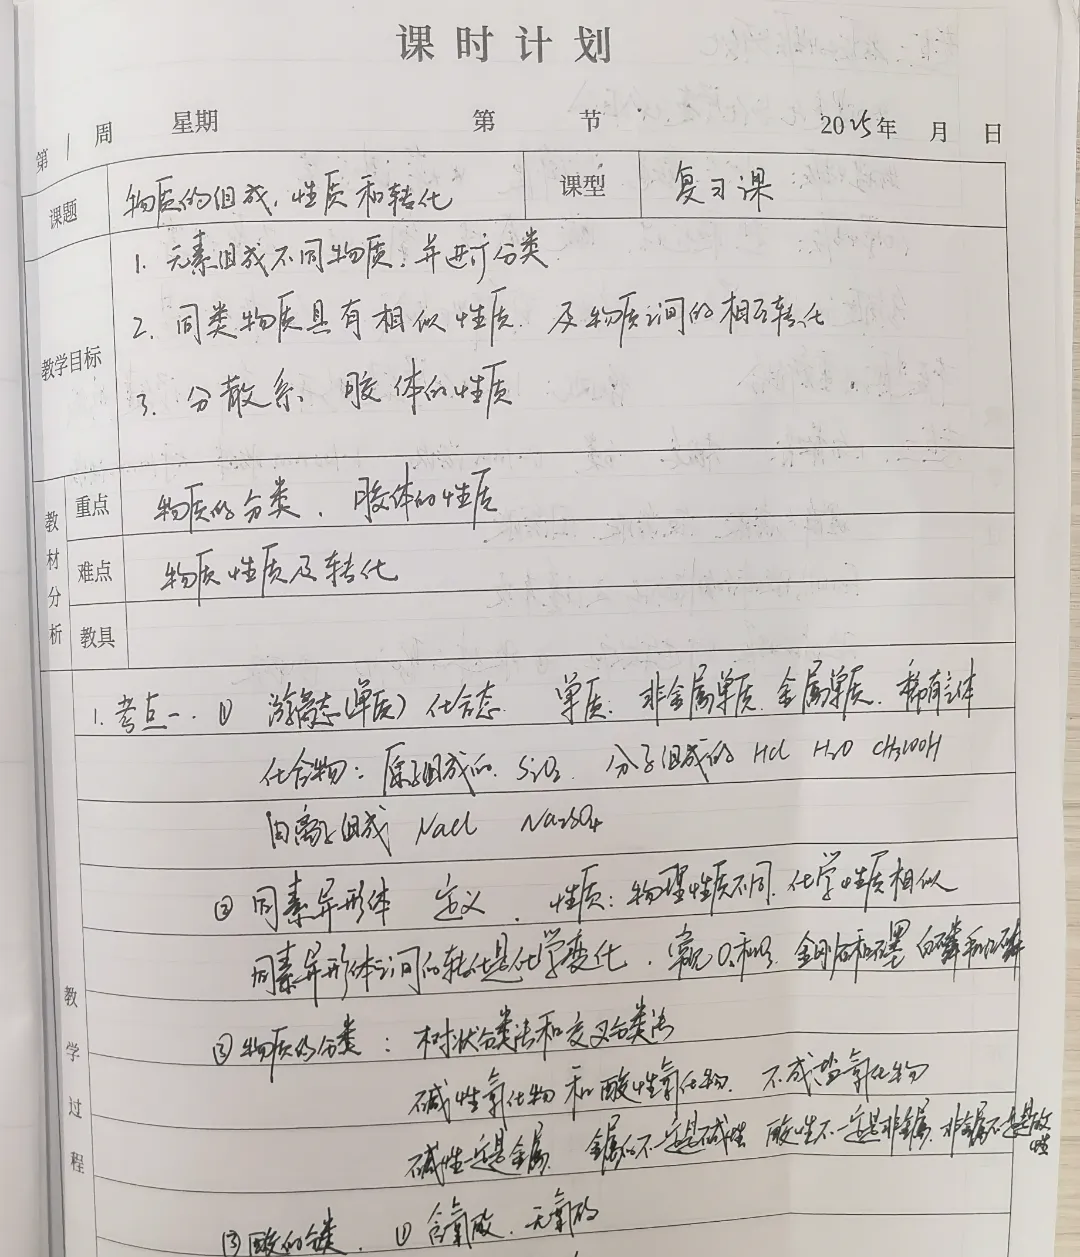 课时计划
第 1 周 星期 第 节 2025年 月 日
课题 物质的组成、性质和转化 课型 复习课
教学目标
1. 元素组成不同物质,并进行分类
2. 同类物质具有相似性质. 及物质之间的相互转化
3. 分散系. 胶体的性质
教材分析
重点 物质的分类、胶体的性质
难点 物质性质及转化
教具
教学过程
1. 考点一. ① 游离态(单质) 化合态. 单质: 非金属单质. 金属单质. 稀有气体
化合物: 原子组成的. SiO2. 分子组成的 HCl H2O CH3COOH
由离子组成 NaCl Na2SO4
② 同素异形体 定义. 性质: 物理性质不同. 化学性质相似
同素异形体之间的转化是化学变化. 常见O2和O3 金刚石和石墨 白磷和红磷
③ 物质的分类: 树状分类法和交叉分类法
碱性氧化物和酸性氧化物. 不成盐氧化物
碱性一定是金属. 金属的不一定是碱性 酸性不一定是非金属. 非金属不一定是酸性
③ 酸的分类. ① 含氧酸. 无氧酸